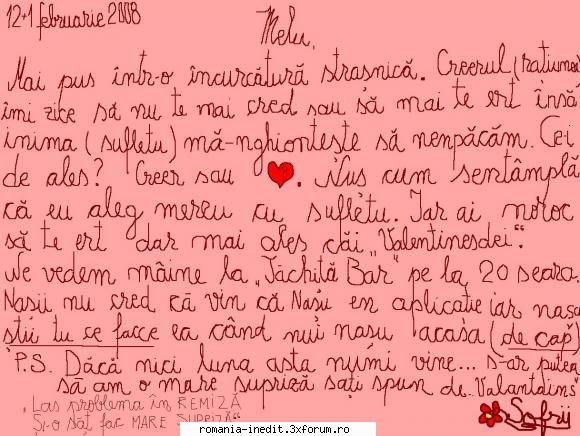 12+1 februarie 2008
Melu,
Mai pus într-o încurcătură strasnică. Creerul (ratiunea
îmi zice să nu te mai cred sau să mai te ert însă
inima (sufletu) mă-nghionteste să nenpăcăm. Cei
de ales? Creer sau ♥. Nus cum sentâmplă
că eu aleg mereu cu sufletu. Iar ai noroc
să te ert dar mai ales căi „Valentinesdei".
Ne vedem mâine la „Tăchiță Bar" pe la 20 seara.
Nasii nu cred că vin că Nasu en aplicatie iar nasa
stii tu ce facce ea când nui nasu acasa (de cap)
P.S. Dăcă nici luna asta numi vine... s-ar putea
să am o mare supriză sați spun de „Valantains"
„Las problema în REMIZĂ
Și-o săț fac MARE SUPRIZĂ"
Sofrij
romania-inedit.3xforum.ro